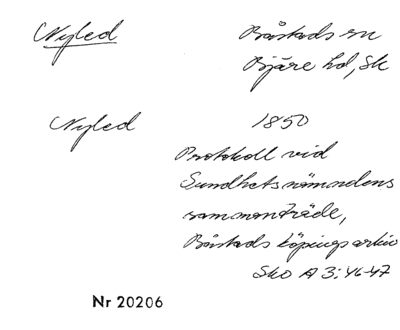 Nyled
Båstads sn
Bjäre hd, Sk
Nyled
1850
Protokoll vid
Sundhetsnämndens
sammanträde,
Båstads köpings arkiv
Sko A 3:46-47
Nr 20206